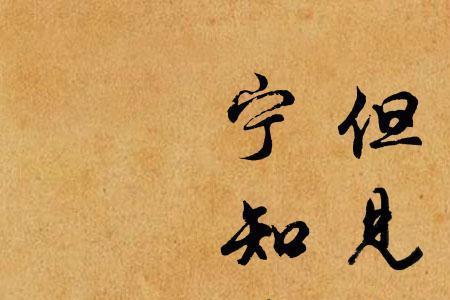 但见
宁知